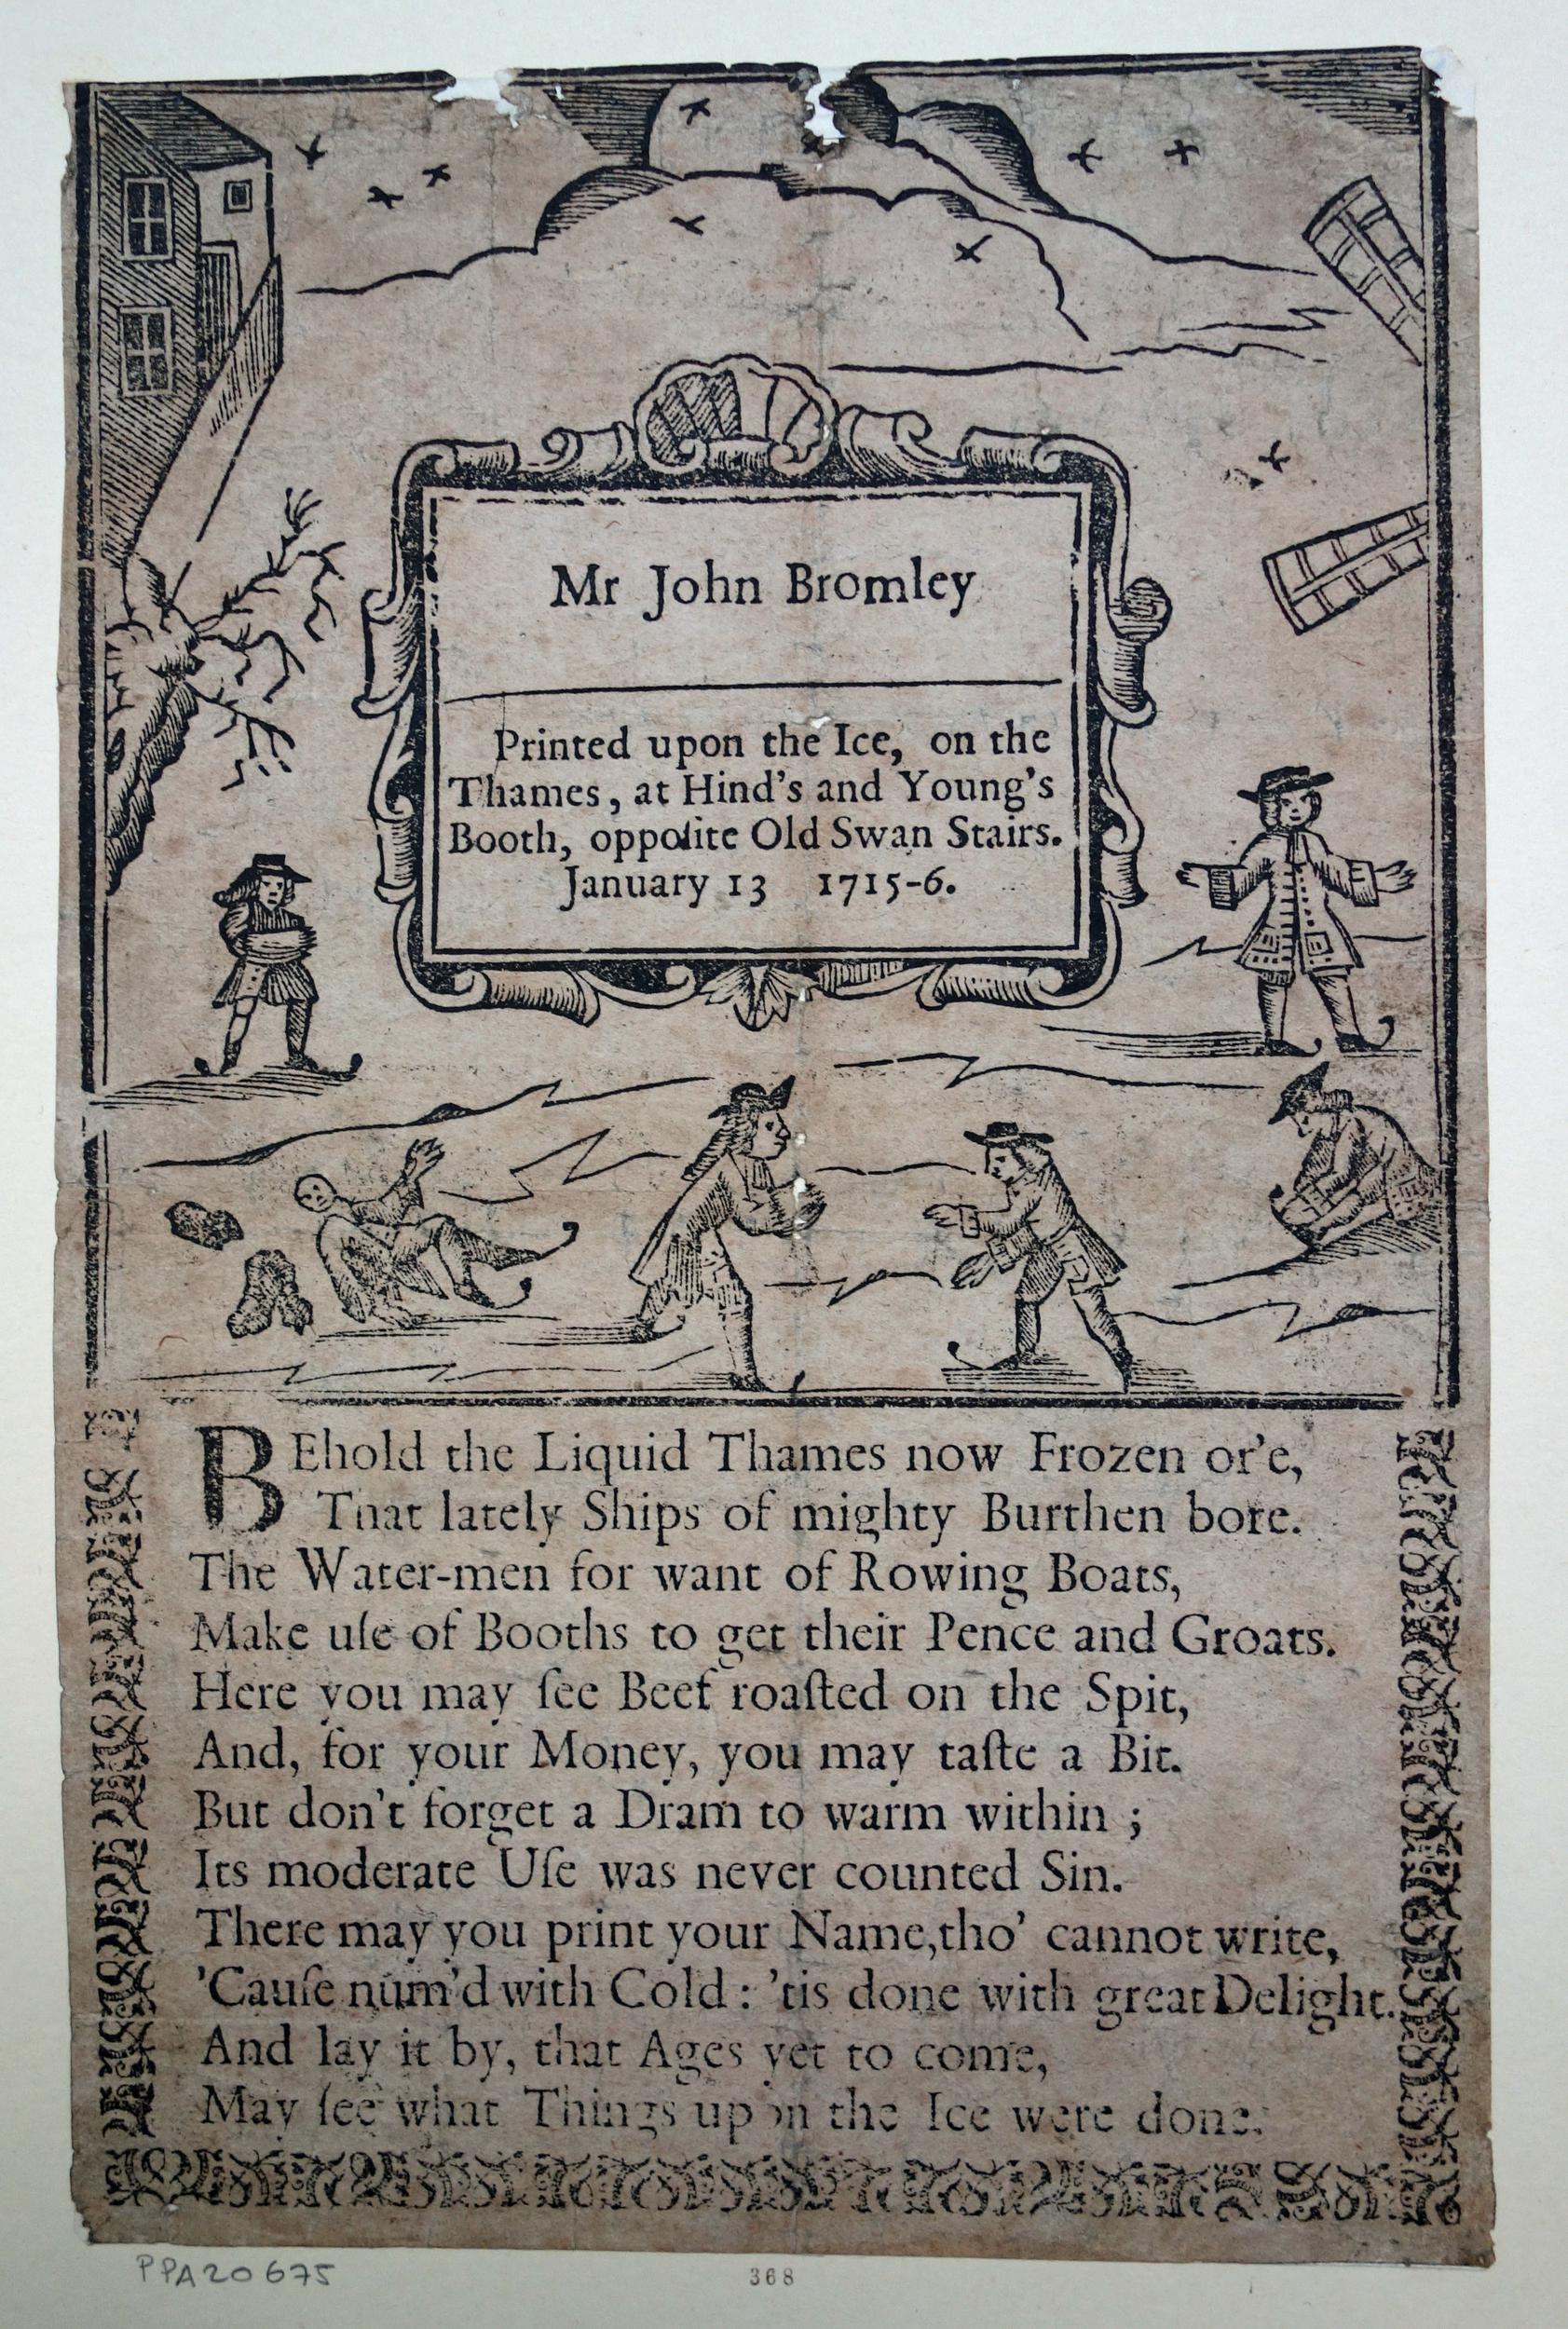 Mr John Bromley
Printed upon the Ice, on the
Thames, at Hind's and Young's
Booth, oppoſite Old Swan Stairs.
January 13 1715-6.
BEhold the Liquid Thames now Frozen or'e,
That lately Ships of mighty Burthen bore.
The Water-men for want of Rowing Boats,
Make uſe of Booths to get their Pence and Groats.
Here you may ſee Beef roaſted on the Spit,
And, for your Money, you may taſte a Bit.
But don't forget a Dram to warm within ;
Its moderate Uſe was never counted Sin.
There may you print your Name,tho' cannot write,
'Cauſe num'd with Cold : 'tis done with great Delight.
And lay it by, that Ages yet to come,
May ſee what Things upon the Ice were done.
PPA20675
368